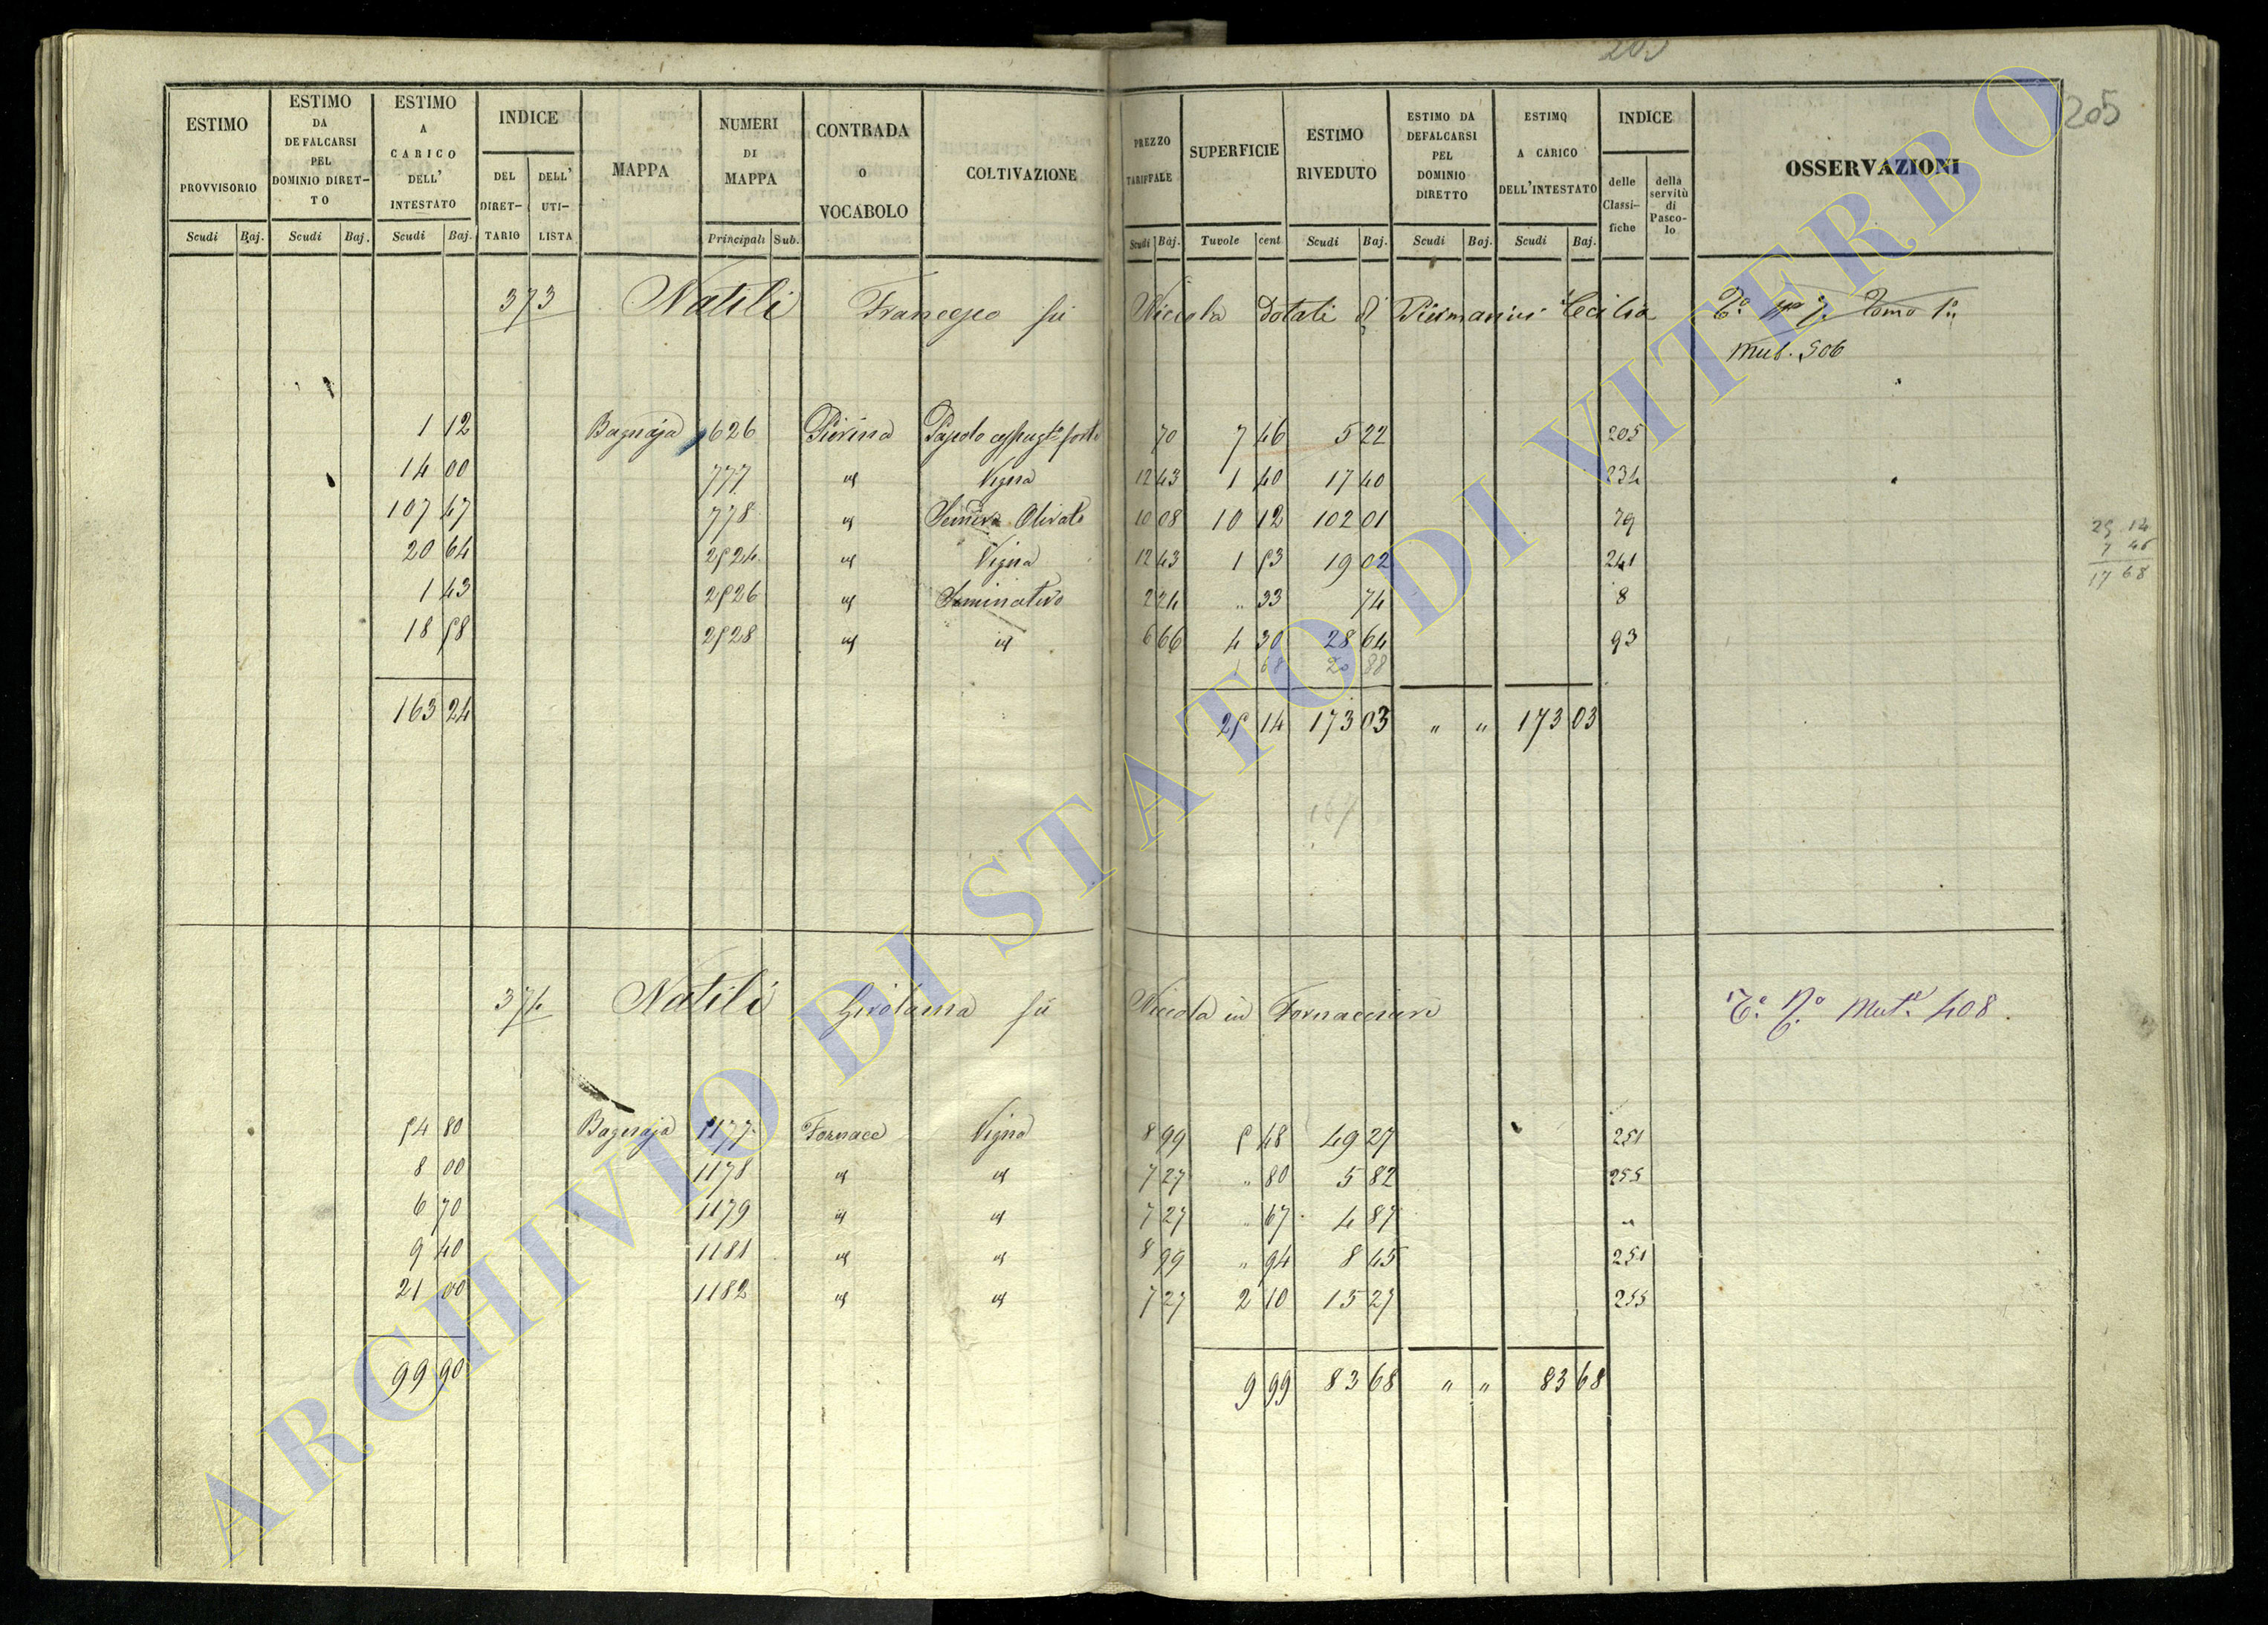 205
ESTIMO PROVVISORIO
ESTIMO DA DEFALCARSI PEL DOMINIO DIRET-TO
ESTIMO A CARICO DELL' INTESTATO
INDICE
DEL DIRET-TARIO
DELL' UTI-LISTA
MAPPA
NUMERI DI MAPPA
CONTRADA O VOCABOLO
COLTIVAZIONE
PREZZO TARIFFALE
SUPERFICIE
ESTIMO RIVEDUTO
ESTIMO DA DEFALCARSI PEL DOMINIO DIRETTO
ESTIMO A CARICO DELL'INTESTATO
INDICE
delle Classi-fiche
della servitù di Pasco-lo
OSSERVAZIONI
Scudi Baj. Scudi Baj. Scudi Baj. Principali Sub. Scudi Baj. Tavole cent Scudi Baj. Scudi Baj. Scudi Baj.
373 Natili Francesco fu Niccola dotali di Piermarini Cecilia
Tomo 1º
Mut. 506
1 12 Bagnaja 626 Pierina Pascolo forte 70 7 46 5 22 205
14 00 777 id Vigna 12 43 1 40 17 40 234
107 47 778 id Olivato 10 08 10 12 102 01 79
20 64 2524 id Vigna 12 43 1 53 19 02 241
1 43 2526 id Seminativo 2 24 " 33 74 8
18 58 2528 id id 6 66 4 30 28 64 93
68 20 88
163 24 25 14 173 03 " " 173 03
25 14
7 46
17 68
374 Natili Girolama fu Niccola in Fornacciari
Mut. 408
54 80 Bagnaja 1177 Fornace Vigna 8 99 5 48 49 27 251
8 00 1178 id id 7 27 " 80 5 82 255
6 70 1179 id id 7 27 " 67 4 87 "
9 40 1181 id id 8 99 " 94 8 45 251
21 00 1182 id id 7 27 2 10 15 27 255
99 90 9 99 83 68 " " 83 68
ARCHIVIO DI STATO DI VITERBO